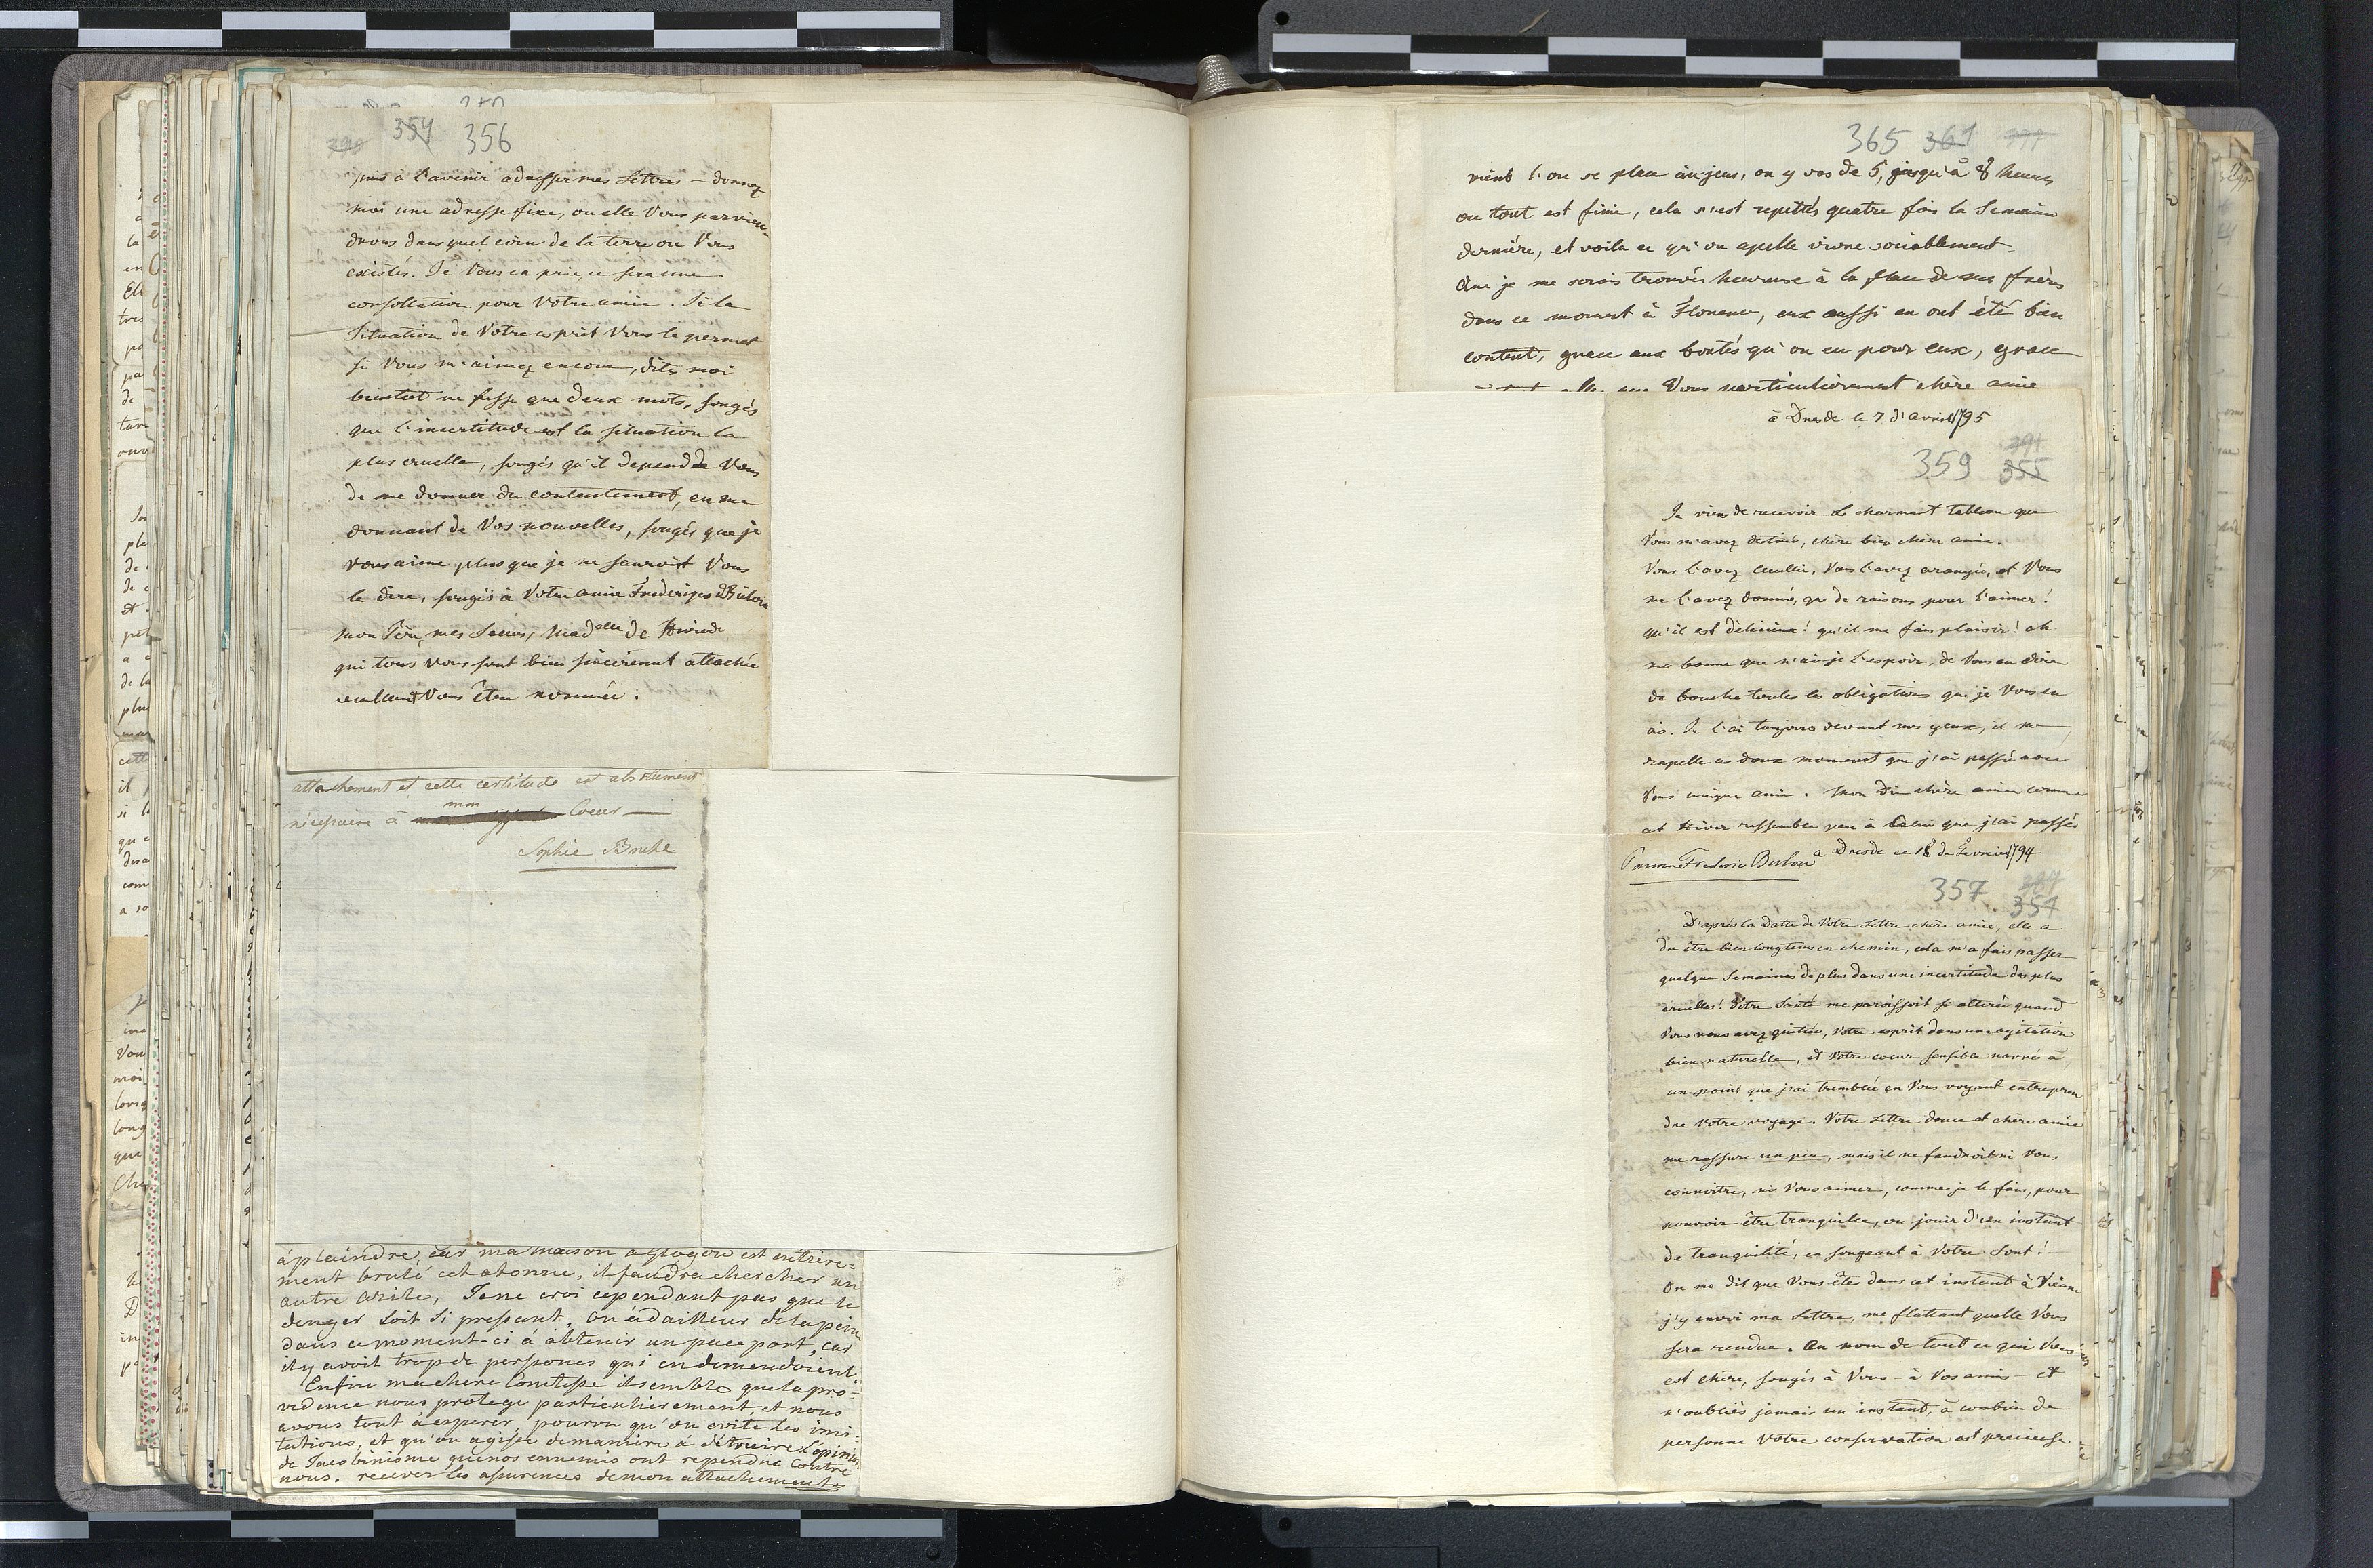 390 354 356
puis à l'avenir adresser mes lettres — donnez
moi une adresse fixe, ou elle Vous parvien-
drons dans quel coin de la terre ou Vous
existés. Je Vous en prie, ce sera une
consollation pour Votre amie. Si la
Situation de Votre esprit Vous le permet
si Vous m'aimez encore, dite moi
bientot ne fusse que deux mots, songés
que l'incertitude est la situation la
plus cruelle, songés qu'il depend de Vous
de me donner du contentement, en me
donnant de Vos nouvelles, songés que je
vous aime plus que je ne saurois Vous
le dire, songés à Votre amie Frederique d Bülow
mon Père, mes Soeurs, Mad elle de
qui tous Vous sont bien sincerement attachée
veullent Vous être nommée.
attachement et cette certitude est absolument
nécessaire à mon Coeur —
Sophie Bruhl
à plaindre, car ma maison a Glogow est entière-
ment brulé cet atonne, il faudra chercher un
autre Azile, Je ne croi cependant pas que le
denger soit si pressant, on à dailleur de la peine
dans ce moment-ci à obtenir un passe port, car
il y avoit trop de persones qui en demendoient.
Enfin ma chere Comtesse il semble que la pro-
vidence nous protege particulierement, et nous
avons tout à esperer, pourvu qu'on evite les imi-
tations, et qu'on agisse de maniere à détruire l'opinion
de Jacobinisme que nos ennemis ont rependue contre
nous. recever les assurences de mon attachement
365 361
vient l'on se place au jeux, on y vas de 5, jusqu'à 8 heures
ou tout est finie, cela s'est repettés quatre fois la Semaine
dernière, et voila ce qu'on apelle vivre sociablement.
Que je me serois trouvée heureuse à la place de mes frères
dans ce moment à Florence, eux aussi en ont été bien
content, grace aux bontés qu'on eu pour eux, grace
Vous particulierement chère amie
à Dresde le 7 d'avril 1795
391
359 355
Je viens de recevoir le charmant tableau que
Vous m'avez destiné, chère bien chère amie.
Vous l'avez Ceuilli, Vous l'avez arangée, et Vous
me l'avez donné, que de raisons pour l'aimer!
qu'il est délicieux! qu'il me fais plaisir! ah
ma bonne que n'ai-je l'espoir, de Vous en dire
de bouche toutes les obligations que je Vous en
ais. Je l'ai toujours devant mes yeux, il me
rapelle ces doux moment que j'ai passé avec
Vous unique amie. Mon Dieu chère amie comme
cet hiver ressemble peu à Celui que j'ai passés
a Dresde ce 18 de Fevrier 1794
357 354
D'après la Datte de Votre Lettre chère amie, elle a
du être bien longtems en chemin, cela m'a fais passer
quelque Semaines de plus dans une incertitude des plus
cruelles! Votre Santé me paroissoit si alterée quand
Vous nous avez quittées, Votre esprit dans une agitation
bien naturelle, et Votre coeur sensible navrés à
un point que j'ai tremblée en Vous voyant entrepren
dre Votre voyage. Votre Lettre douce et chère amie
me rassure un peu, mais il ne faudroit ni Vous
connoitre, ni Vous aimer, comme je le fais, pour
pouvoir être tranquille, ou jouir d'un instant
de tranquilité, en songeant à Votre Sort! —
On me dit que Vous êtes dans cet instant à Vienne
j'y envoi ma Lettre, me flattant quelle Vous
sera rendue. Au nom de tout ce qui Vous
est chère, songés à Vous — à Vos amis — et
n'oubliés jamais un instant, à combien de
personne Votre conservation est precieuse